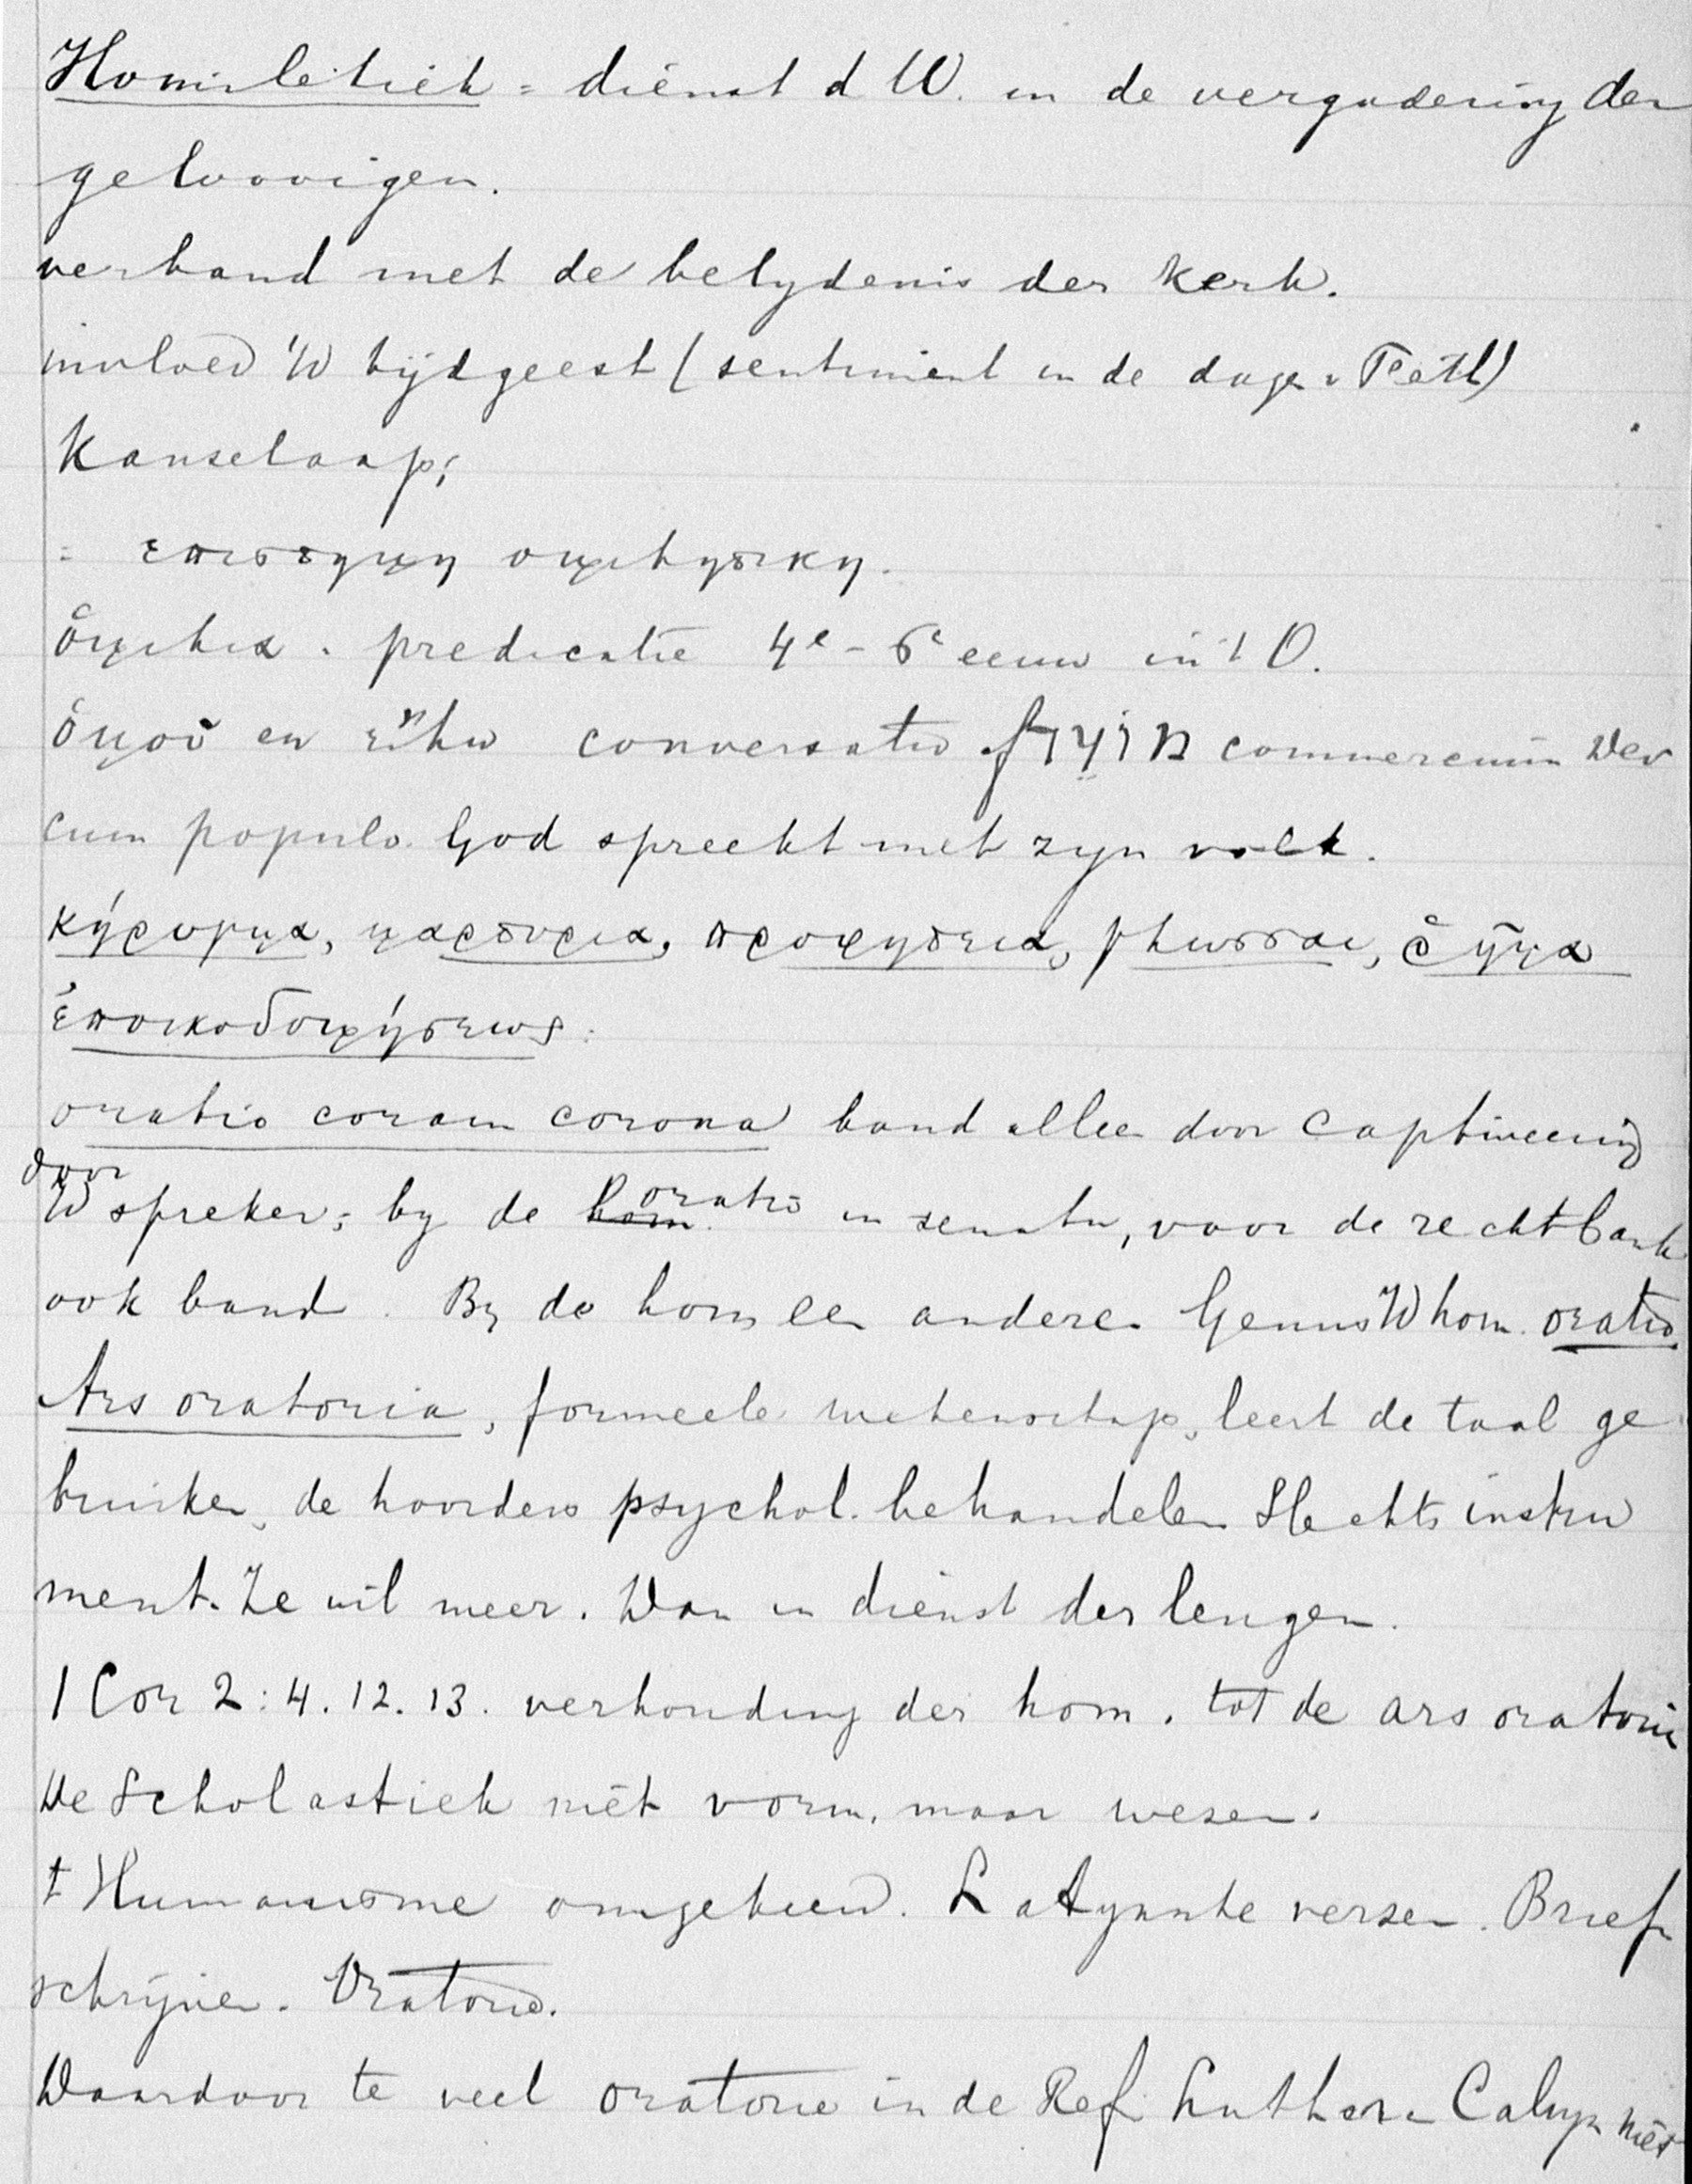 Homiletiek = dienst d W. in de vergadering der
geloovigen.
verband met de belydenis der Kerk.
invloed tijdgeest (sentiment in de dagen v
Kanselaap;
= επιστημη ομιλητικη.
ὁμιλια. predicatie 4e - 6e eeuw in 't O.
ὁμοῦ en conversatio commercium Dei
cum populo. God spreekt met zyn volk.
κήρυγμα, μαρτυρια, προφητεια, γλωσσαι, ῥῆμα
ἐποικοδομήσεως.
oratio coram corona band alleen door captiveering
door
spreker; by de hom. oratio in senatu, voor de rechtbank
ook band. By de hom een andere. Genus hom. oratio.
Ars oratoria, formeele wetenschap, leert de taal ge
bruiken, de hoorders psychol. behandelen Slechts instru
ment. Ze wil meer. Dan in dienst der leugen.
1 Cor 2:4.12.13. verhouding der hom. tot de ars oratoria
De Scholastiek niet vorm, maar wezen.
't Humanisme omgekeerd. Latynsche verzen. Brief
schrijven. Oratorie.
Daardoor te veel oratorie in de Ref. Luther en Calvyn niet